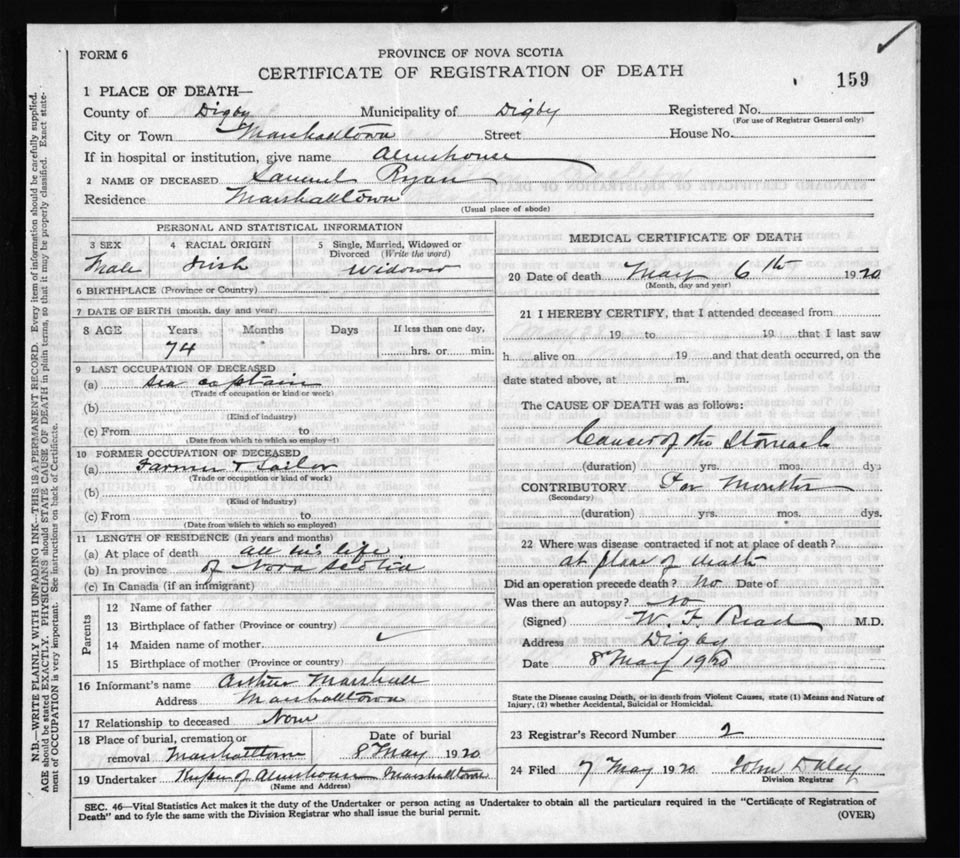 FORM 6
PROVINCE OF NOVA SCOTIA
CERTIFICATE OF REGISTRATION OF DEATH
159
1 PLACE OF DEATH—
County of Digby Municipality of Digby Registered No.
(For use of Registrar General only)
City or Town Marshalltown Street House No.
If in hospital or institution, give name Almshouse
2 NAME OF DECEASED Samuel Ryan
Residence Marshalltown
(Usual place of abode)
PERSONAL AND STATISTICAL INFORMATION
3 SEX 4 RACIAL ORIGIN 5 Single, Married, Widowed or Divorced (Write the word)
Male Irish Widower
6 BIRTHPLACE (Province or Country)
7 DATE OF BIRTH (month, day and year)
8 AGE Years Months Days If less than one day,
74 hrs. or min.
9 LAST OCCUPATION OF DECEASED
(a) Sea captain
(Trade or occupation or kind or work)
(b)
(Kind of industry)
(c) From to
(Date from which to which so employed)
10 FORMER OCCUPATION OF DECEASED
(a) Farmer & Sailor
(Trade or occupation or kind of work)
(b)
(Kind of industry)
(c) From to
(Date from which to which so employed)
11 LENGTH OF RESIDENCE (In years and months)
(a) At place of death all his life
(b) In province of Nova Scotia
(c) In Canada (if an immigrant)
Parents
12 Name of father
13 Birthplace of father (Province or country)
14 Maiden name of mother
15 Birthplace of mother (Province or country)
16 Informant's name Arthur Marshall
Address Marshalltown
17 Relationship to deceased None
18 Place of burial, cremation or removal Marshalltown
Date of burial
8 May 1920
19 Undertaker Keeper of Almshouse Marshalltown
(Name and Address)
MEDICAL CERTIFICATE OF DEATH
20 Date of death May 6th 1920
(Month, day and year)
21 I HEREBY CERTIFY, that I attended deceased from
19 to 19 that I last saw
h alive on 19 and that death occurred, on the
date stated above, at m.
The CAUSE OF DEATH was as follows:
Cancer of the Stomach
(duration) yrs. mos. dys
CONTRIBUTORY For Months
(Secondary)
(duration) yrs. mos. dys.
22 Where was disease contracted if not at place of death?
at place of death
Did an operation precede death? No Date of
Was there an autopsy? No
(Signed) W. F. Read M.D.
Address Digby
Date 8 May 1920
State the Disease causing Death, or in death from Violent Causes, state (1) Means and Nature of
Injury, (2) whether Accidental, Suicidal or Homicidal.
23 Registrar's Record Number 2
24 Filed 7 May 1920 John Daley
Division Registrar
SEC. 46—Vital Statistics Act makes it the duty of the Undertaker or person acting as Undertaker to obtain all the particulars required in the "Certificate of Registration of
Death" and to fyle the same with the Division Registrar who shall issue the burial permit.
(OVER)
N.B.—WRITE PLAINLY WITH UNFADING INK—THIS IS A PERMANENT RECORD. Every item of information should be carefully supplied.
AGE should be stated EXACTLY. PHYSICIANS should STATE CAUSE OF DEATH in plain terms, so that it may be properly classified. Exact state-
ment of OCCUPATION is very important. See instructions on back of Certificate.